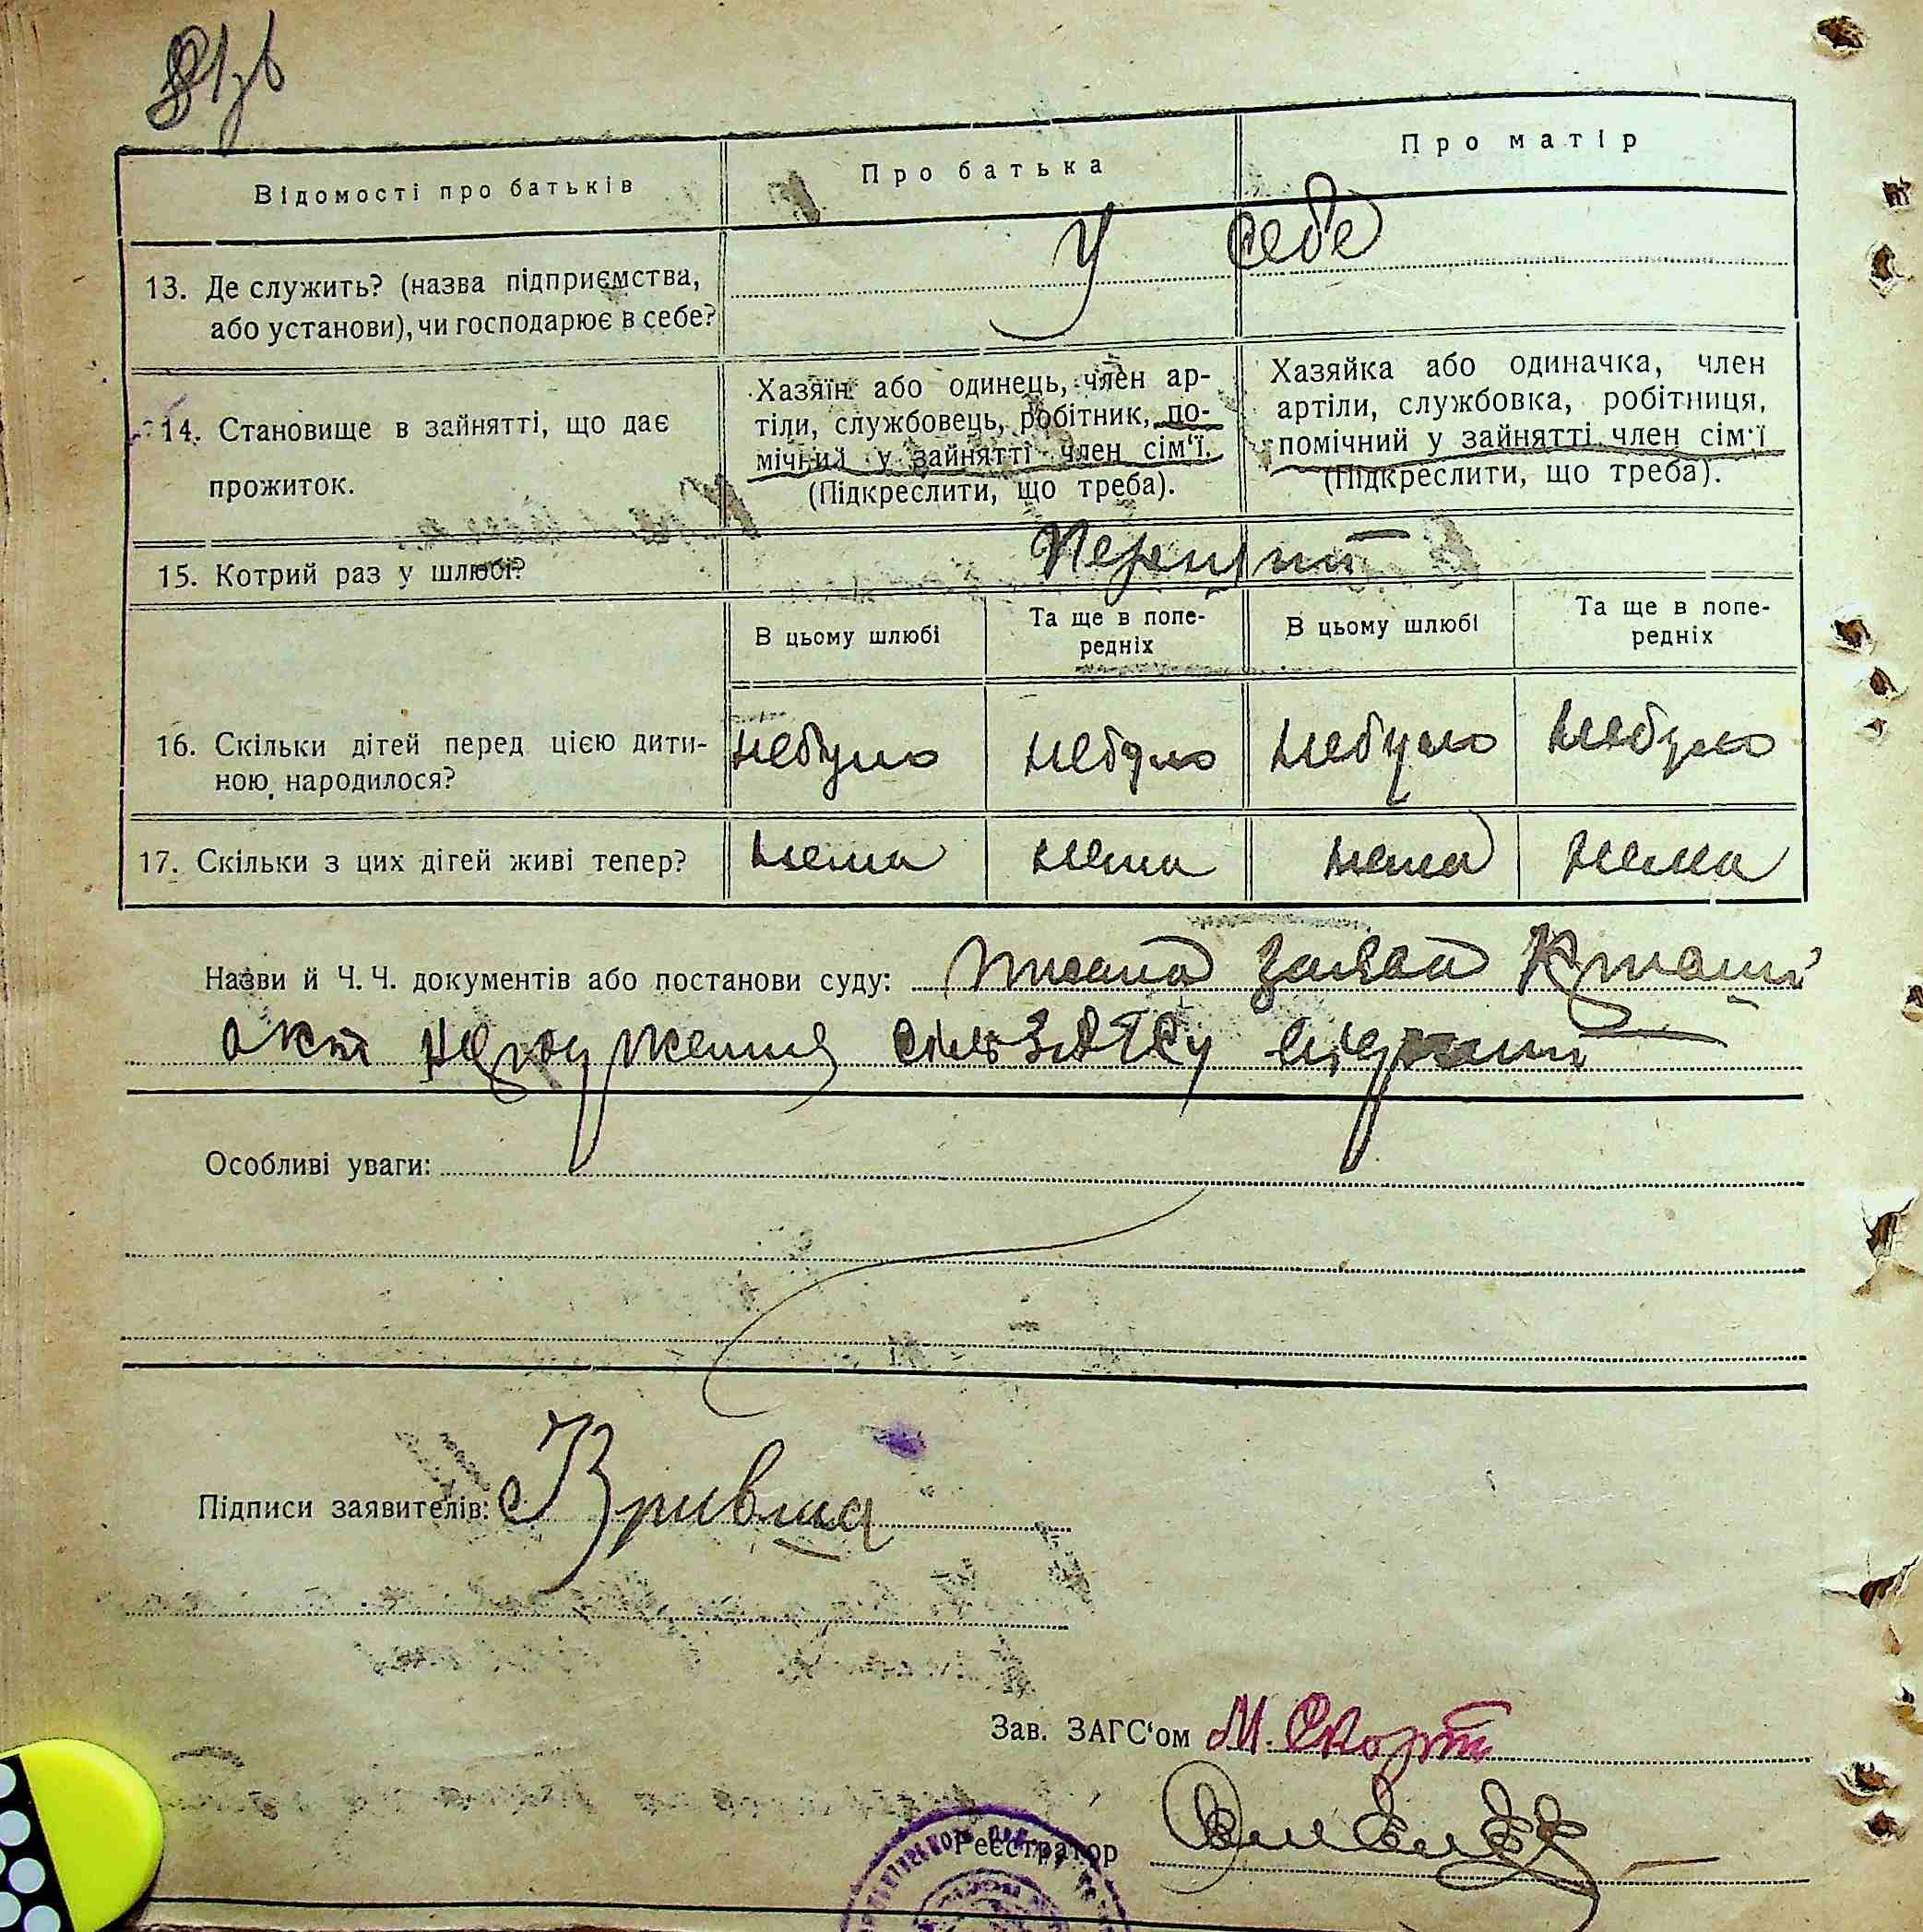 81зв
Відомості про батьків
Про батька
Про матір
13. Де служить? (назва підприємства,
або установи), чи господарює в себе?
У себе
14. Становище в зайнятті, що дає
прожиток.
Хазяїн або одинець, член ар-
тіли, службовець, робітник, по-
мічний у зайнятті член сім‘ї.
(Підкреслити, що треба).
Хазяйка або одиначка, член
артіли, службовка, робітниця,
помічний у зайнятті член сім‘ї
(Підкреслити, що треба).
15. Котрий раз у шлюбі?
Перший
В цьому шлюбі
Та ще в попе-
редніх
В цьому шлюбі
Та ще в попе-
редніх
16. Скільки дітей перед цією дити-
ною народилося?
небуло небуло небуло небуло
17. Скільки з цих дітей живі тепер?
нема нема нема нема
Назви й Ч. Ч. документів або постанови суду:
акт
Особливі уваги:
Підписи заявителів:
Зав. ЗАГС‘ом М.
Реєстратор